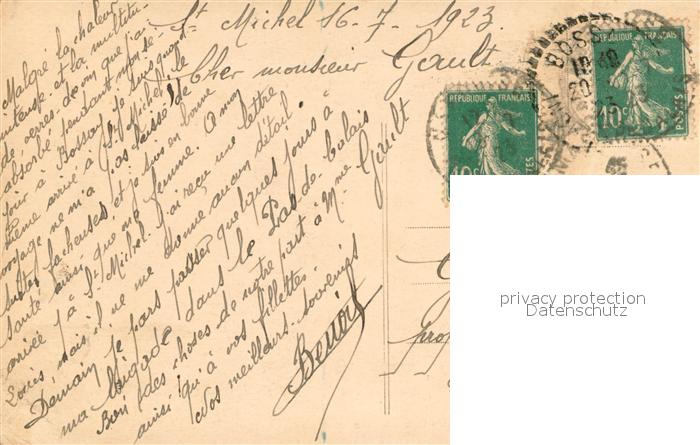 St Michel 16-7-1923
Cher monsieur Gault
Malgré la chaleur
intense et la multitu-
de de verres de vin que j'ai
absorbé pendant mon sé-
jour à Bossay je suis quand
même arrivé à St Michel. Le
voyage ne m'a pas laissé de
suites facheuses et je suis en bonne
santé ainsi que ma femme. A mon
arrivée à St Michel j'ai reçu une lettre
mais il ne me donne aucun détail.
Demain je pars passer quelques jours à
ma brigade dans le Pas de Calais
Bien des choses de notre part à Mme Gault
ainsi qu'à vos fillettes.
Nos meilleurs souvenirs
Benoit
REPUBLIQUE FRANÇAISE
10c
POSTES
REPUBLIQUE FRANÇAISE
10c
POSTES
BOSS
privacy protection
Datenschutz